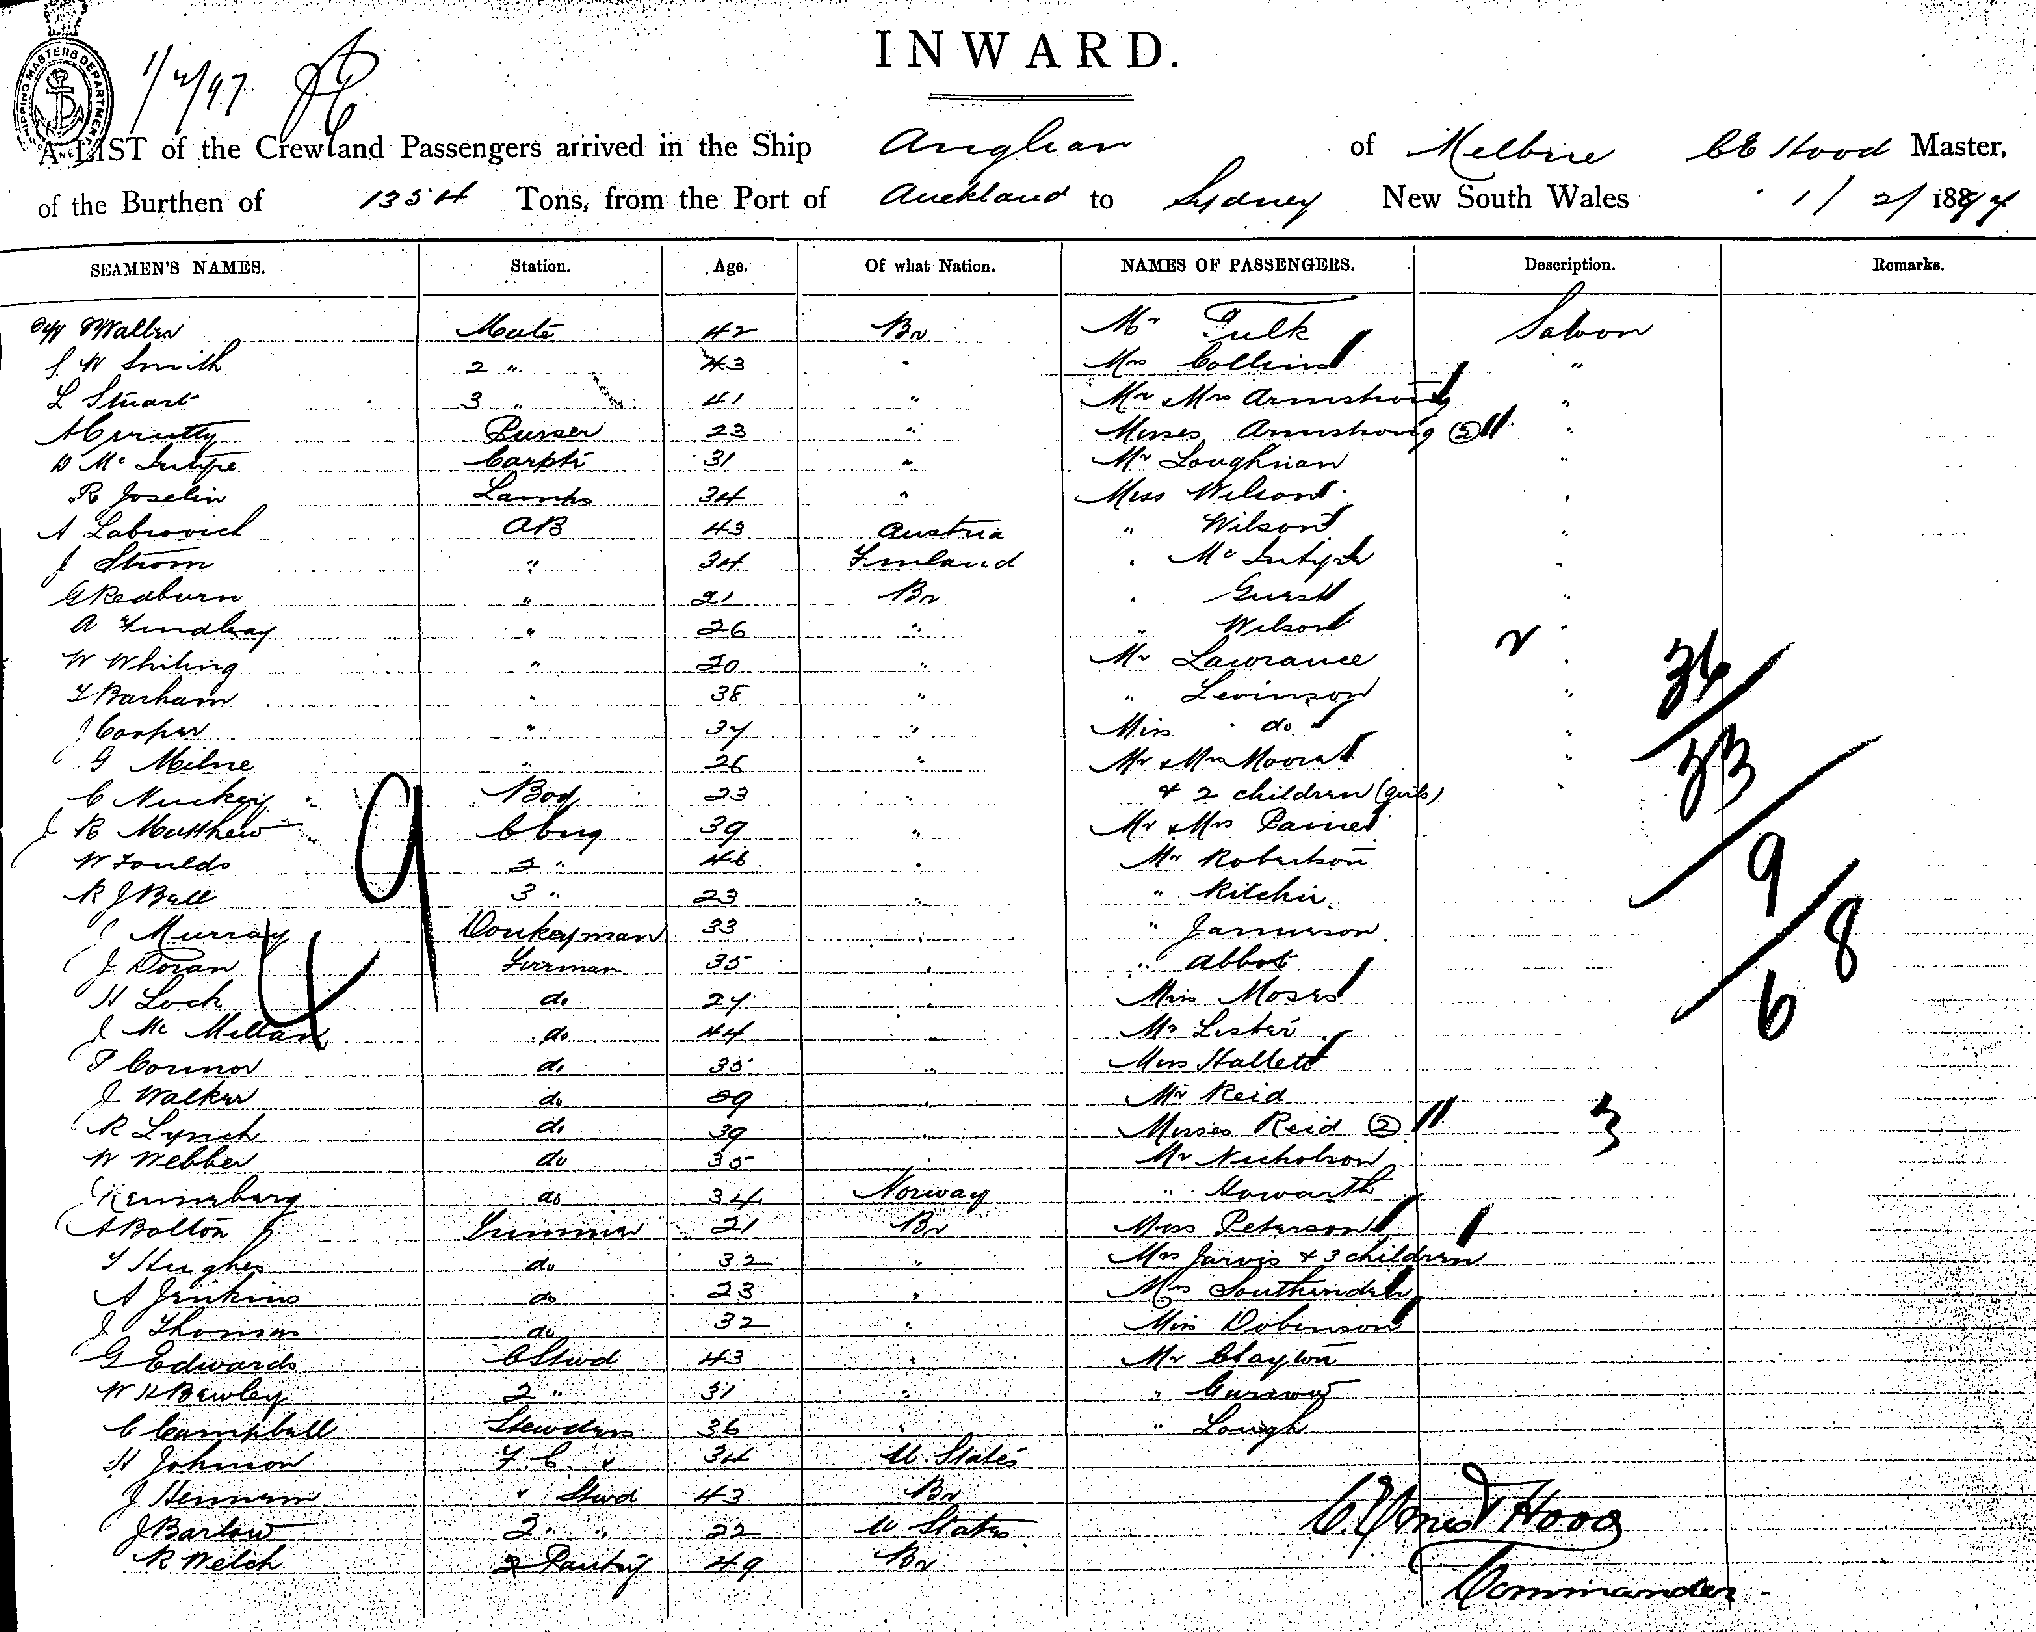 SHIPPING MASTERS DEPARTMENT
1/2/97
INWARD.
A LIST of the Crew and Passengers arrived in the Ship Anglian of Melbne CE Hood Master,
of the Burthen of 1354 Tons, from the Port of Auckland to Sydney New South Wales 1/2/1897
SEAMEN'S NAMES. Station. Age. Of what Nation. NAMES OF PASSENGERS. Description. Remarks.
Waller Mate 42 Br Mr Tulk Saloon
S W Smith 2 " 43 " Mrs Collins "
L Stuart 3 " 41 " Mr & Mrs Armstrong "
Purser 23 " Misses Armstrong (5) "
D McIntyre Carptr 31 " Mr Loughnan "
R Joselin Lamps 34 " Miss Wilson "
A Labrovich AB 43 Austria " Wilson "
J Strom " 34 Finland " McIntyre "
G Redburn " 21 Br " Gurst "
A Findlay " 26 " " Wilson "
W Whiting " 20 " Mr Lawrance "
T Barham " 38 " " Levinson "
J Cooper " 37 " Miss do "
G Milne " 26 " Mr & Mrs Moore "
C Nuckey Boy 23 " & 2 children (girls) "
J R Matthew C Eng 39 " Mr & Mrs Paine
W Foulds 2 " 46 " Mr Robertson
R J Ball 3 " 23 " " Ritchie
J Murray Donkeyman 33 " Jamieson
J Doran Fireman 35 " " Abbot
H Lock do 27 " Miss Moses
J McMillan do 44 " Mr Lester
P Connor do 35 " Miss Hallett
J Walker do 29 " Mr Reid
R Lynch do 39 " Misses Reid (2)
W Webber do 35 " Mr Nicholson
Renneberg do 34 Norway " Howarth
A Bolton Trimmer 21 Br Miss Peterson
T Hughes do 32 " Mrs Jarvis & 3 children
A Jenkins do 23 " Mrs
J Thomas do 32 " Miss Dobinson
G Edwards C Stwd 43 " Mr Clayton
W H Bewley 2 " 31 "
C Campbell Stewdess 36 " " Lough
H Johnson F. C. 34 U. States
J Stwd 43 Br
J Barlow 2 " " 22 U States
R Welch 2 Pantry 49 Br
9
4
2
3
34
33
9
8
6
Hood
Commander